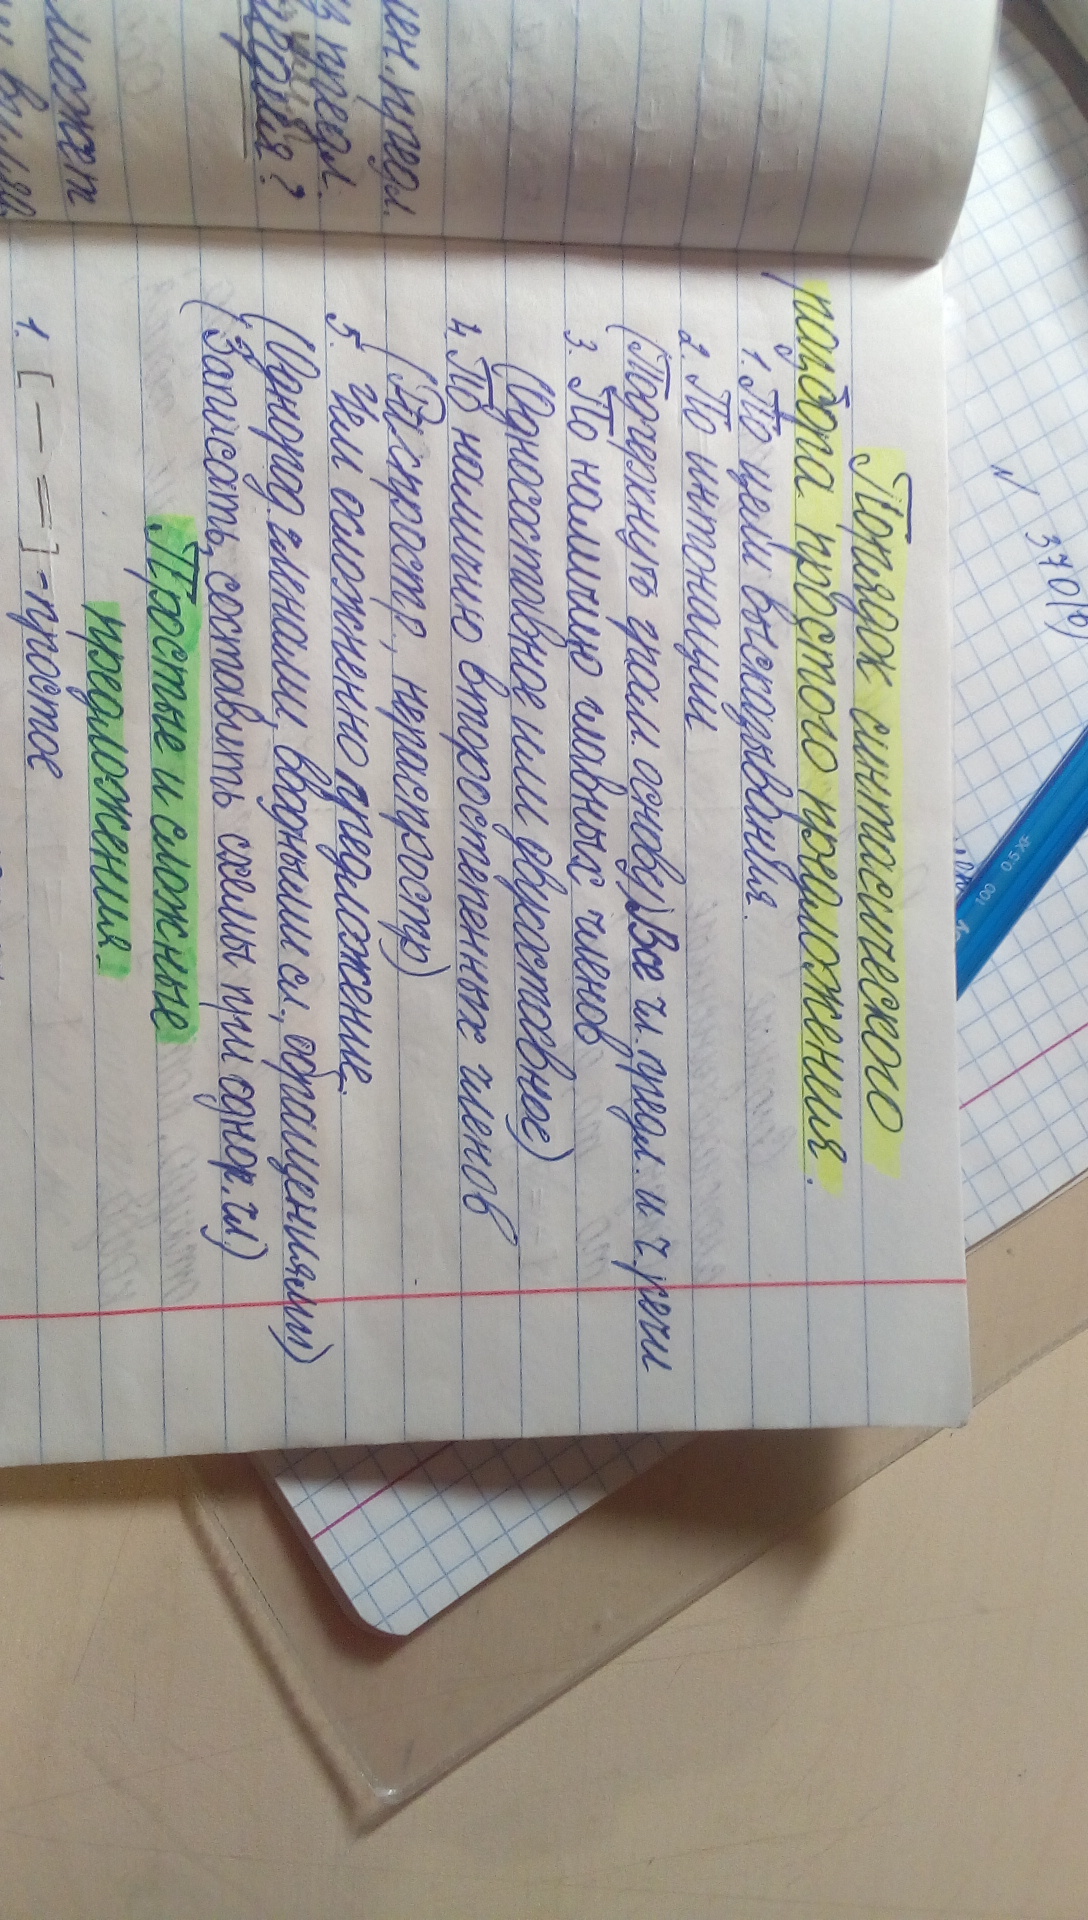 Порядок синтксического
разбора простого предложения.
1. По цели высказывания.
2. По интонации
(Подчеркнуть грам. основу) Все чл. предл. и ч. речи
3. По наличию главных членов
(Односоставное или двухставное)
4. По наличию второстепенных членов
(Распростр, нераспростр)
5. Чем осложненно предложение.
(Однород. членами, вводными сл., обращениями)
(Записать, составить схемы при однор. чл.)
Простые и сложные
предложения.
1. [ — = ] - простое
член. предл.
предл.
?
может
N 370(б)
100 0.5 XF